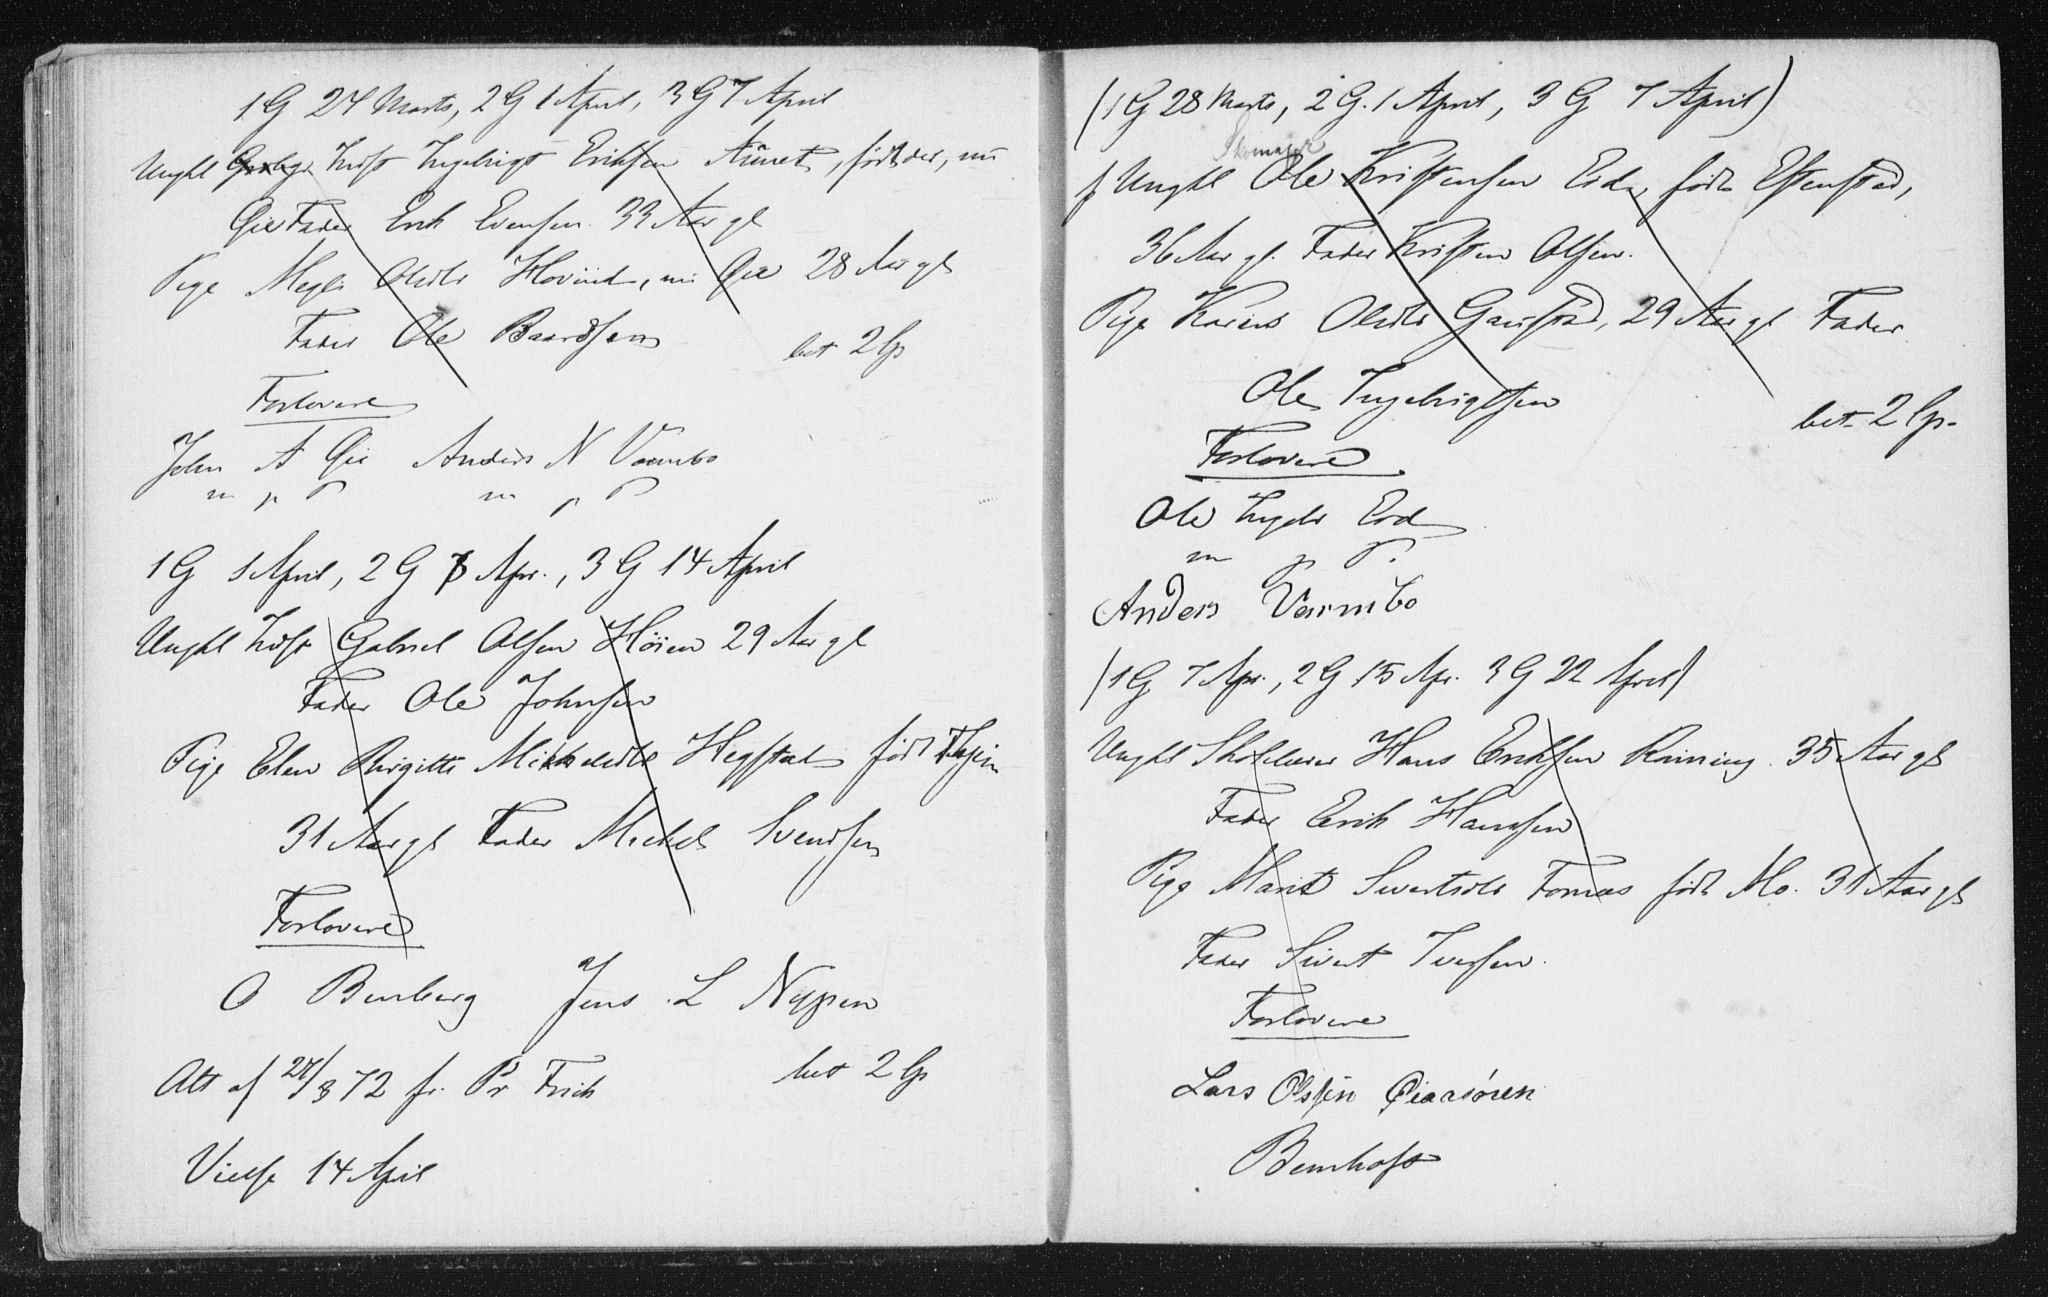 1 G 24 Marts, 2 G 1 April, 3 G 7 April
Ungkl Indst Ingebrigt Eriksen Aunet, født der, nu
Gie Fader Erik Evensen. 33 Aar gl
Pige Olsdtr Hovind, nu Gie 28 Aar gl
Fader Ole Baardsen bet 2 Sp
Forlovere
John A Gie Anders N Vormbo
m p P m p P
1 G 1 April, 2 G 7 Apr., 3 G 14 April
Ungkl Indst Gabriel Olsen Höien 29 Aar gl
Fader Ole Johnsen
Pige Elen Birgitte Mikkelsdtr Hegstad født
31 Aar gl Fader Mickel Svendsen
Forlovere
O Benberg Jens L Nypen
Att af 27/3 72 fr. Pr Frich bet 2 Sp
Vielse 14 April
(1 G 28 Marts, 2 G. 1 April, 3 G 7 April)
Skomager
f Ungkl Ole Kristensen Eid, født Estenstad,
36 Aar gl. Fader Kristen Olsen.
Pige Karen Olsdtr Gaustad, 29 Aar gl Fader
Ole Ingebrigtsen
bet 2 Sp.
Forlovere
Ole Eid
m p P.
Anders Varmbo
(1 G 7 Apr., 2 G 15 Apr. 3 G 22 April)
Ungkl Skolelærer Hans Eriksen Rønning. 35 Aar gl
Fader Erik Hansen
Pige Marit Sivertsdtr født Mo. 31 Aar gl
Fader Sivert Iversen.
Forlovere
Lars Olsen
Bernhoft